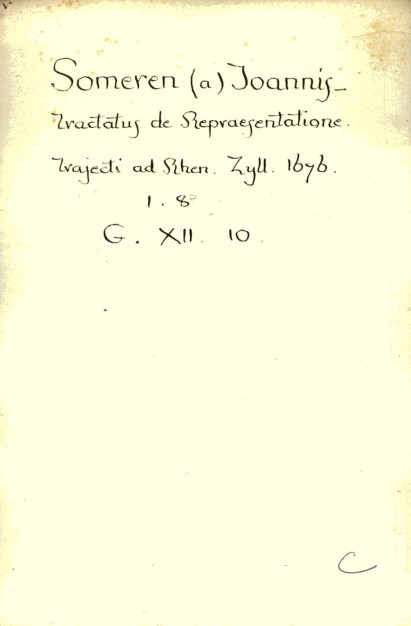 Someren (a) Joannis_
Tractatus de Repraesentatione.
Trajecti ad Rhen. Zyll. 1676.
1. 8º
G. XII. 10.
C